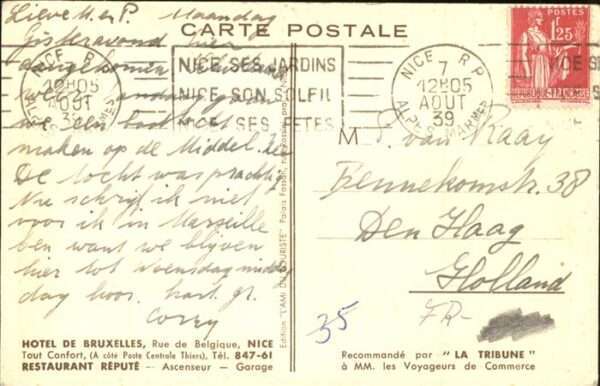 CARTE POSTALE
Lieve M. en P. Maandag
Gisteravond hier
aangekomen
we
we een
maken op de Middel. Zee
De tocht was prachtig
Nu schrijf ik niet
voor ik in Marseille
ben want we blijven
hier tot woensdagmiddag
dag hoor. hart. gr.
Corry
NICE R P
12H05
AOUT
39
ALPES MARMES
NICE SES JARDINS
NICE SON SOLEIL
NICE SES FETES
NICE R P
7
12H05
AOUT
39
ALPES MARMES
1F25
POSTES
REPUBLIQUE FRANÇAISE
NICE SE
NICE SO
Edition "L'AMI DU TOURISTE"
M J. van Raay
Bennekomstr. 38
Den Haag
Holland
35
FR-
HOTEL DE BRUXELLES, Rue de Belgique, NICE
Tout Confort, (A côté Poste Centrale Thiers), Tél. 847-61
RESTAURANT RÉPUTÉ — Ascenseur — Garage
Recommandé par "LA TRIBUNE"
à MM. les Voyageurs de Commerce